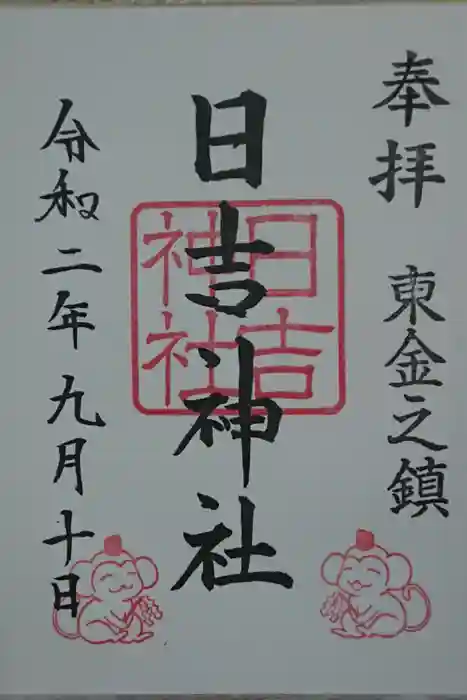 奉拝 東金之鎮
日吉神社
日吉
神社
令和二年九月十日